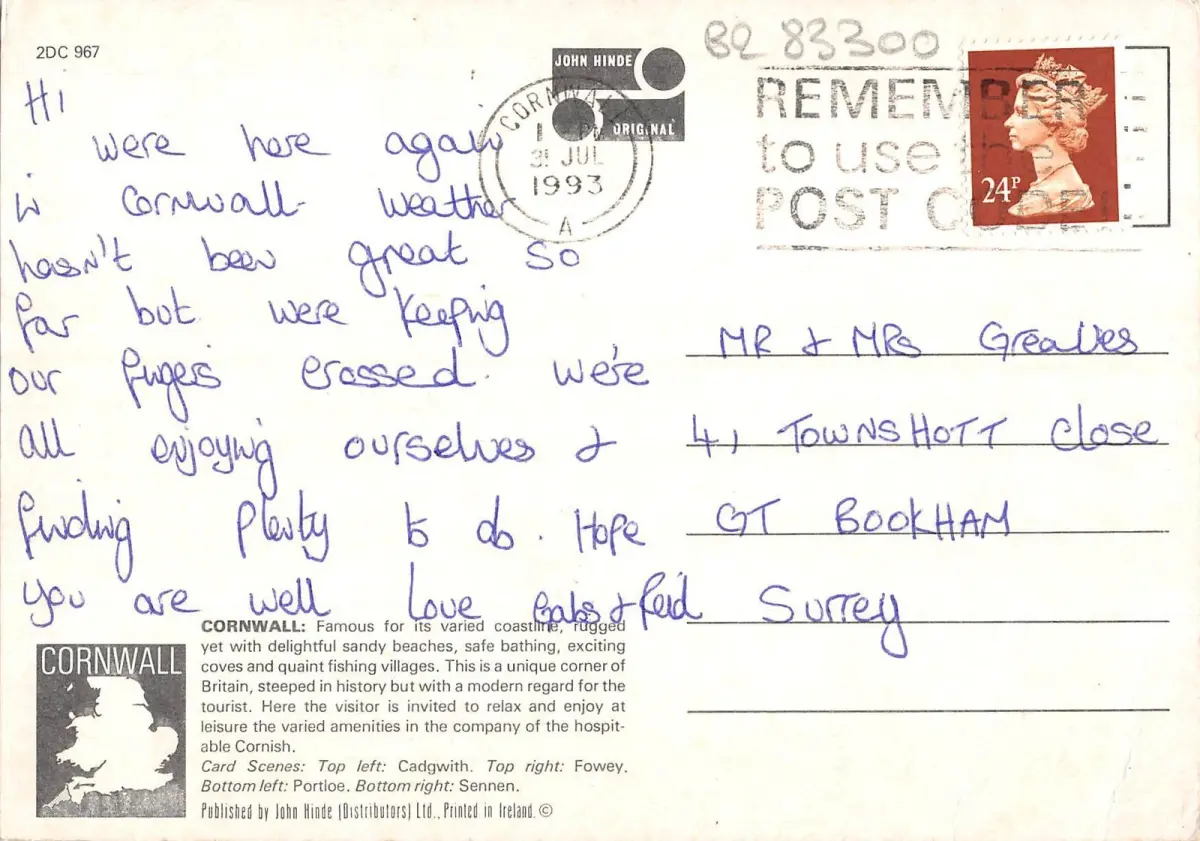 2DC 967
BR 83300
JOHN HINDE
ORIGINAL
CORNWALL
31 JUL
1993
A
REMEMBER
to use the
POST CODE
24P
Hi
were here again
in Cornwall. Weather
hasn't been great so
far but were keeping
our fingers crossed. We're
all enjoying ourselves &
finding plenty to do. Hope
you are well Love Babs &
MR & MRs Greaves
41 TOWNSHOTT Close
GT BOOKHAM
Surrey
CORNWALL
CORNWALL: Famous for its varied coastline, rugged
yet with delightful sandy beaches, safe bathing, exciting
coves and quaint fishing villages. This is a unique corner of
Britain, steeped in history but with a modern regard for the
tourist. Here the visitor is invited to relax and enjoy at
leisure the varied amenities in the company of the hospit-
able Cornish.
Card Scenes: Top left: Cadgwith. Top right: Fowey.
Bottom left: Portloe. Bottom right: Sennen.
Published by John Hinde (Distributors) Ltd., Printed in Ireland. ©